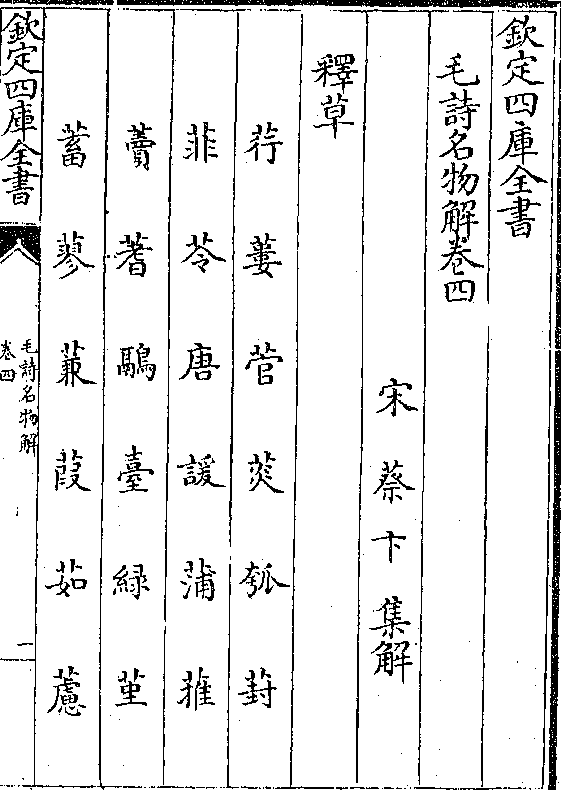 欽定四庫全書
毛詩名物解卷四
宋蔡卞集解
釋草
荇蔞菅菼瓠葑
菲苓唐諼蒲蓷
藚蓍鷊臺緑堇
蓄蓼蒹葭茹藘
欽定四庫全書
毛詩名物解
卷四
一